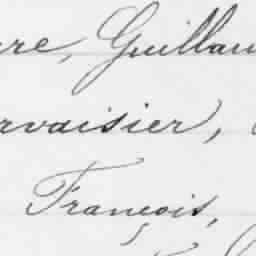 re, Guillau
rvaisier,
François,